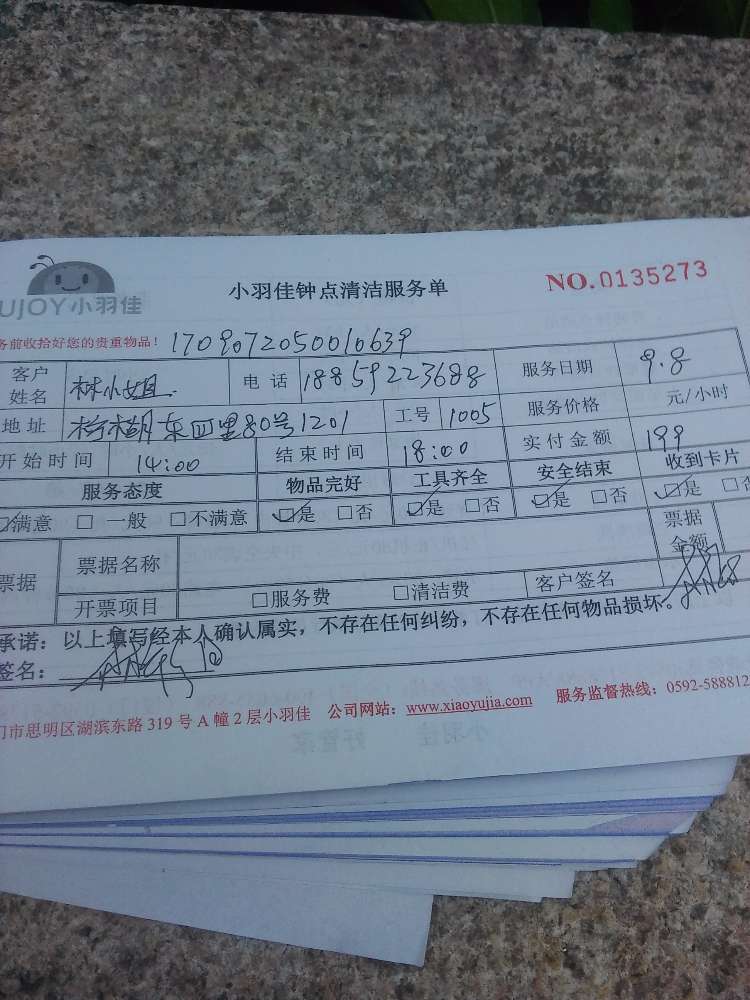 UJOY小羽佳
小羽佳钟点清洁服务单
NO.0135273
务前收拾好您的贵重物品！ 1709072050010639
客户姓名 林小姐 电 话 18859223688 服务日期 9.8
地 址 东四里80号1201 工号 1005 服务价格 元/小时
开始时间 14:00 结束时间 18:00 实付金额 199
服务态度 物品完好 工具齐全 安全结束 收到卡片
☑满意 □ 一般 □不满意 ☑是 □否 ☑是 □否 ☑是 □否 ☑是 □否
票据 票据名称 票据金额
开票项目 □服务费 □清洁费 客户签名
承诺：以上填写经本人确认属实，不存在任何纠纷，不存在任何物品损坏。
签名：
门市思明区湖滨东路 319 号 A 幢 2 层小羽佳 公司网站：www.xiaoyujia.com 服务监督热线：0592-588812